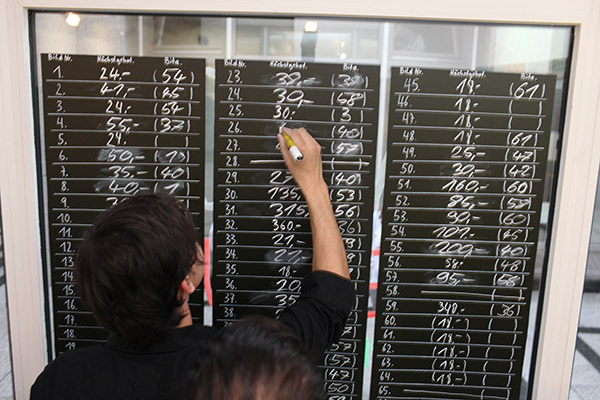 Bild Nr. Höchstgebot. Bite.
1. 24.- (54)
2. 41,- (45)
3. 24,- (54)
4. 55,- (37)
5. 24.- ( )
6. 60,- (19)
7. 35,- (40)
8. 40.- (1)
9.
10.
11.
12.
13
14
15
16
17
18
19
Bild Nr. Höchstgebot. Bite.
23. 39,- (39)
24. 30,- (68)
25. 30.- (3)
26. (40)
27. (57)
28.
29. (40)
30. 135,- (53)
31. 315,- (56)
32. 360,-
33. 21,-
34. 27,-
35. 18.-
36. 20,-
37.
38.
39.
Bild Nr. Höchstgebot. Bite.
45. 18.- (61)
46. 18,- ( )
47. 18.- ( )
48. 18,- (61)
49. 25,- (47)
50. 30,- (42)
51. 160,- (60)
52. 85,-
53. 90,- (60)
54. 101,- (45)
55. 200,- (40)
56. 58,- (48)
57. 95,- (68)
58.
59. 340.- (36)
60. (18,-) ( )
61. (18,-) ( )
62. (18.-) ( )
63. (18,-) ( )
64. (18,-) ( )
65.